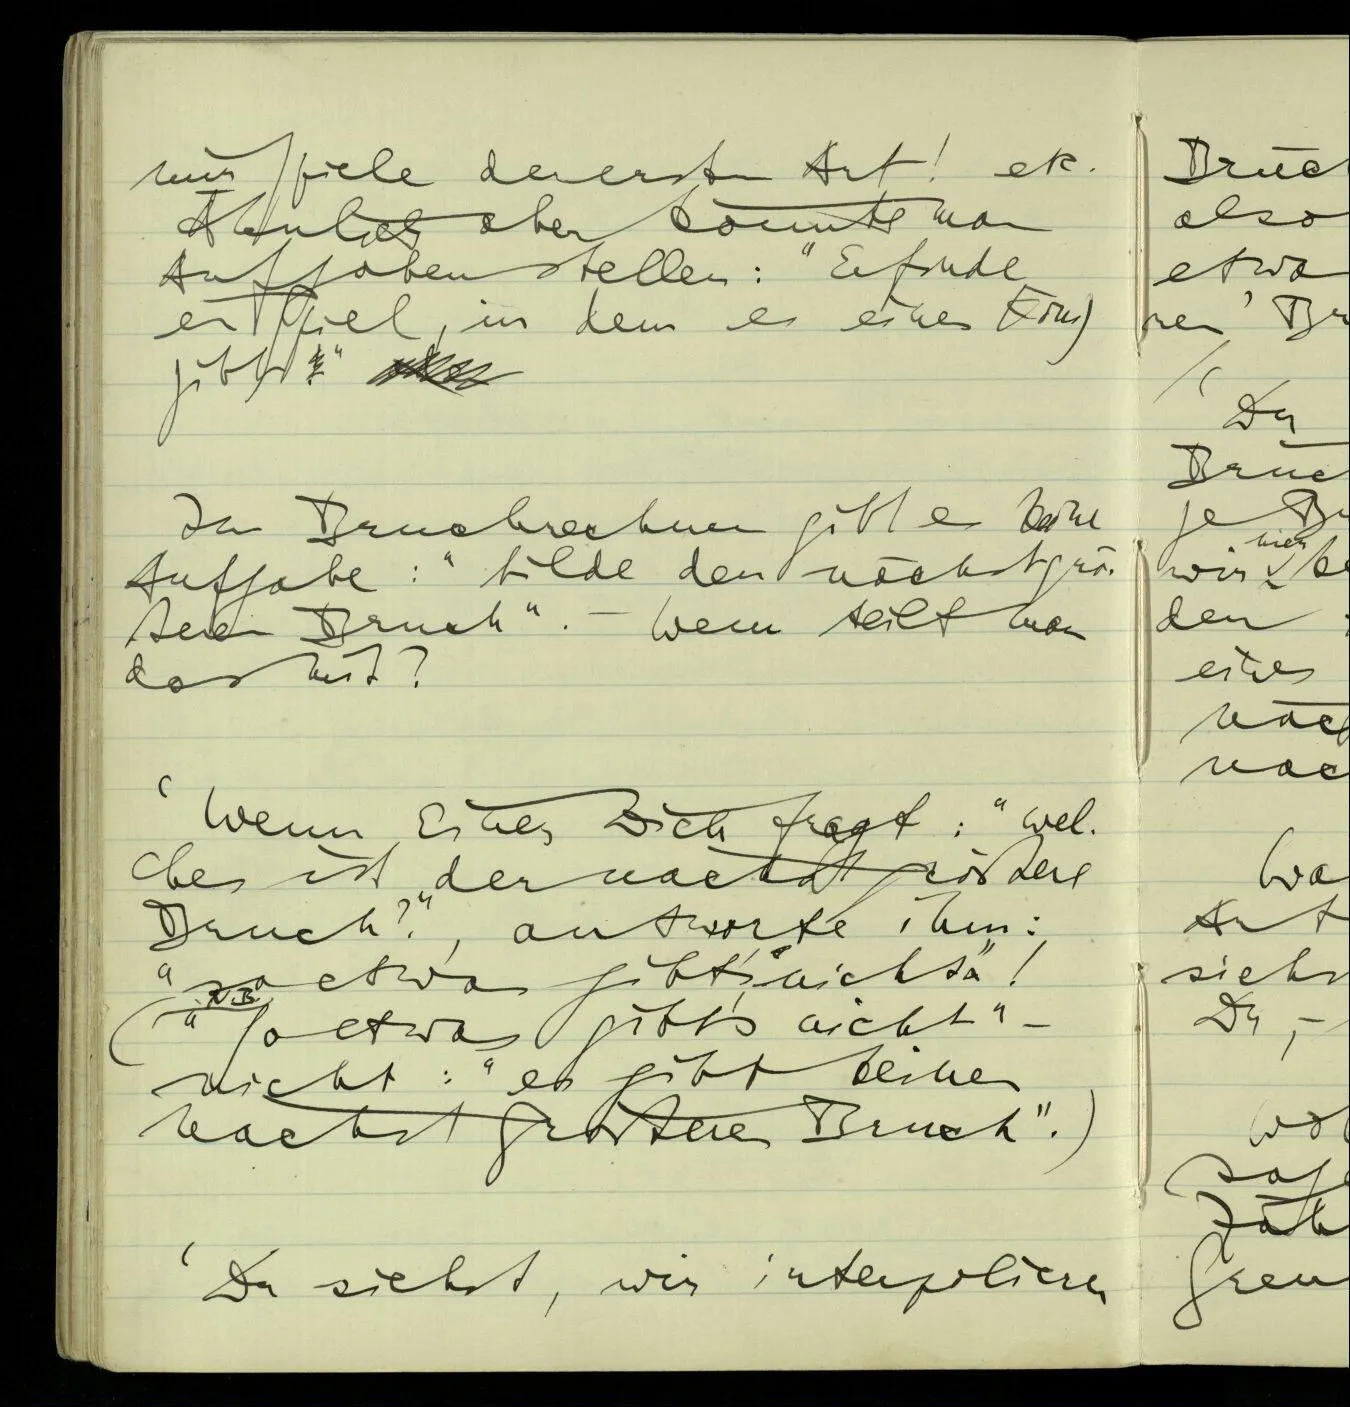 nur Spiele der ersten Art! etc.
Ähnlich aber könnte man
Aufgaben stellen: "Erfinde
ein Spiel, in dem es einen König
gibt!"
Im Bruchrechnen gibt es keine
Aufgabe: "bilde den nächstgrö-
ßeren Bruch". – Wem teilt man
das mit?
'Wenn Einer Dich fragt: "wel-
ches ist der nächst größere
Bruch?", antworte ihm:
"so etwas gibt's nicht"!
N.B.
("So etwas gibt's nicht" –
nicht: "es gibt keinen
nächst größeren Bruch".)
'Du siehst, wir interpolieren
Bruch
also
etwa
nen' Br
'Du
Bruch
je Br
hier
wir
den
eines
näch
nach
Wa
Art
siehs
Du, –
sage
Zäh
Gren